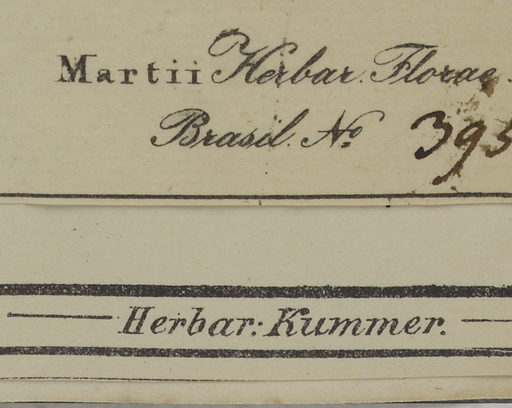 Martii Herbar. Florae
Brasil. No. 395
Herbar: Kummer.